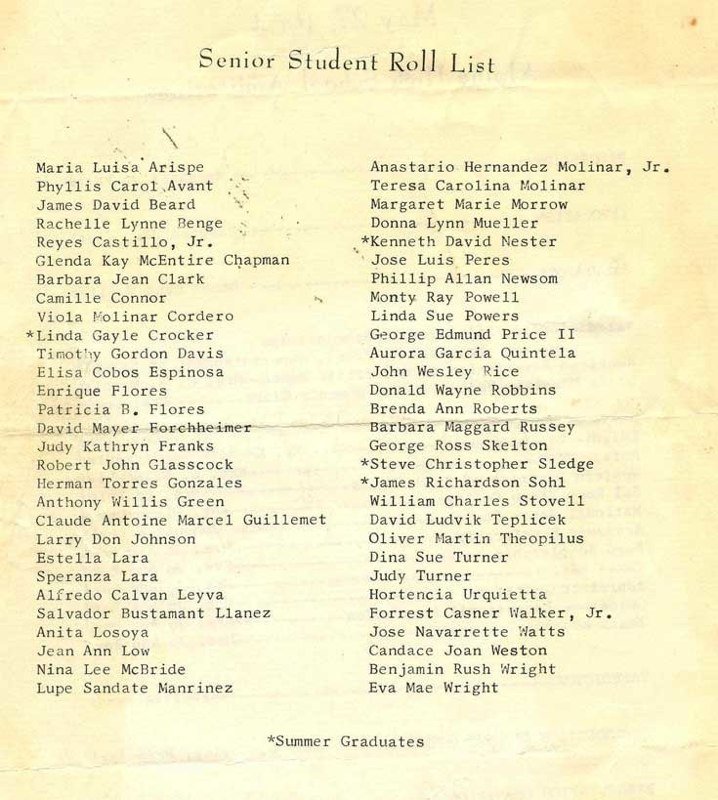 Senior Student Roll List
Maria Luisa Arispe
Phyllis Carol Avant
James David Beard
Rachelle Lynne Benge
Reyes Castillo, Jr.
Glenda Kay McEntire Chapman
Barbara Jean Clark
Camille Connor
Viola Molinar Cordero
*Linda Gayle Crocker
Timothy Gordon Davis
Elisa Cobos Espinosa
Enrique Flores
Patricia B. Flores
David Mayer Forchheimer
Judy Kathryn Franks
Robert John Glasscock
Herman Torres Gonzales
Anthony Willis Green
Claude Antoine Marcel Guillemet
Larry Don Johnson
Estella Lara
Speranza Lara
Alfredo Calvan Leyva
Salvador Bustamant Llanez
Anita Losoya
Jean Ann Low
Nina Lee McBride
Lupe Sandate Manrinez
Anastario Hernandez Molinar, Jr.
Teresa Carolina Molinar
Margaret Marie Morrow
Donna Lynn Mueller
*Kenneth David Nester
Jose Luis Peres
Phillip Allan Newsom
Monty Ray Powell
Linda Sue Powers
George Edmund Price II
Aurora Garcia Quintela
John Wesley Rice
Donald Wayne Robbins
Brenda Ann Roberts
Barbara Maggard Russey
George Ross Skelton
*Steve Christopher Sledge
*James Richardson Sohl
William Charles Stovell
David Ludvik Teplicek
Oliver Martin Theopilus
Dina Sue Turner
Judy Turner
Hortencia Urquietta
Forrest Casner Walker, Jr.
Jose Navarrette Watts
Candace Joan Weston
Benjamin Rush Wright
Eva Mae Wright
*Summer Graduates